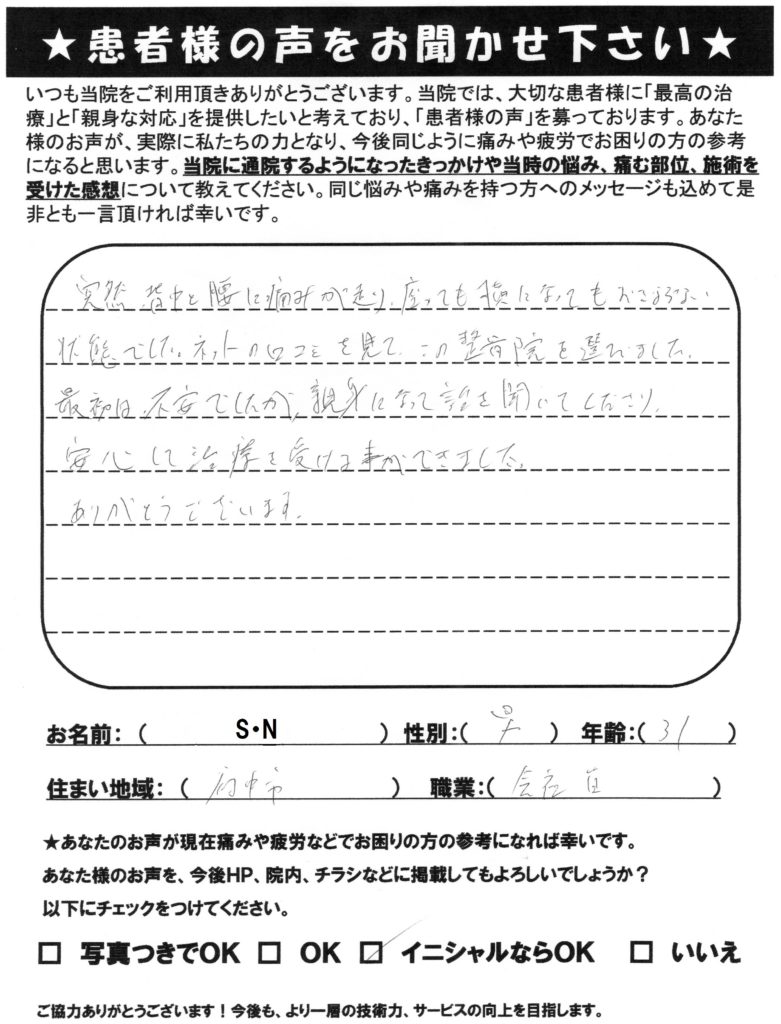 ★患者様の声をお聞かせ下さい★
いつも当院をご利用頂きありがとうございます。当院では、大切な患者様に「最高の治
療」と「親身な対応」を提供したいと考えており、「患者様の声」を募っております。あなた
様のお声が、実際に私たちの力となり、今後同じように痛みや疲労でお困りの方の参考
になると思います。当院に通院するようになったきっかけや当時の悩み、痛む部位、施術を
受けた感想について教えてください。同じ悩みや痛みを持つ方へのメッセージも込めて是
非とも一言頂ければ幸いです。
突然背中と腰に痛みが走り、座っても横になってもおさまらない
状態でした。ネットの口コミを見て、この整骨院を選びました。
最初は、不安でしたが、親身になって話を聞いてくださり、
安心して治療を受ける事ができました。
ありがとうございます。
お名前:( S・N ) 性別:( 男 ) 年齢:( 31 )
住まい地域:( 府中市 ) 職業:( 会社員 )
★あなたのお声が現在痛みや疲労などでお困りの方の参考になれば幸いです。
あなた様のお声を、今後HP、院内、チラシなどに掲載してもよろしいでしょうか?
以下にチェックをつけてください。
□ 写真つきでOK □ OK ☑ イニシャルならOK □ いいえ
ご協力ありがとうございます!今後も、より一層の技術力、サービスの向上を目指します。